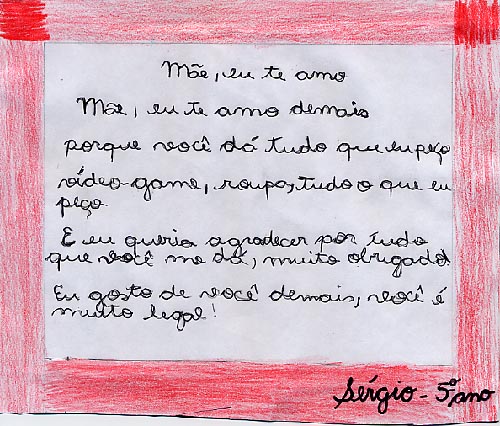 Mãe, eu te amo
Mãe, eu te amo demais
porque você dá tudo que eu peço
vídeo game, roupa, tudo o que eu
peço.
E eu queria agradecer por tudo
que você me dá, muito obrigado
Eu gosto de você demais, você é
muito legal!
Sérgio - 5º ano